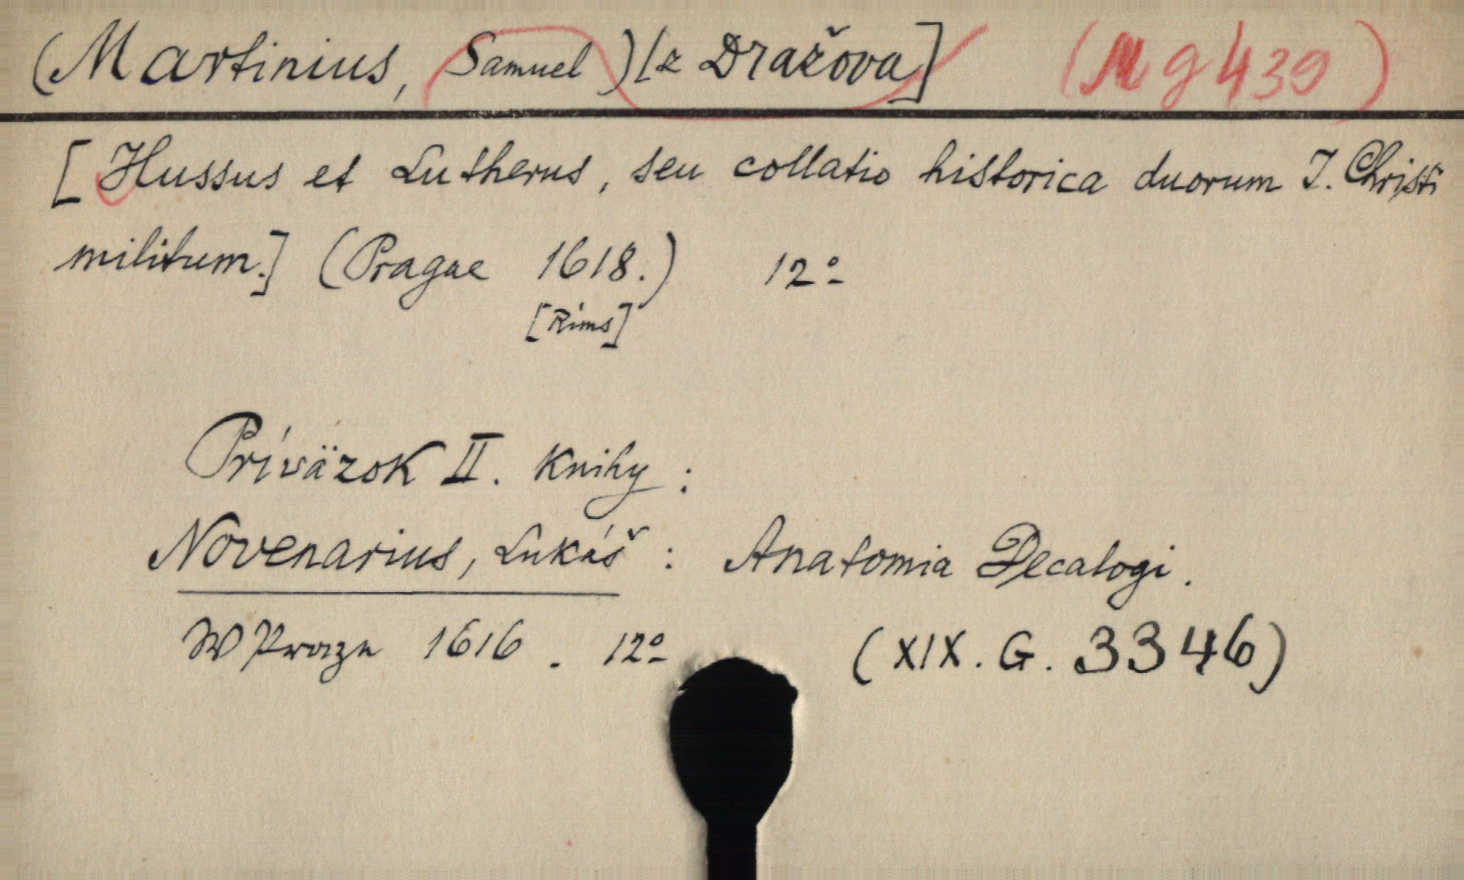 (Martinius, Samuel) [z Dražova] (Mg 439)
[Hussus et Lutherus, seu collatio historica duorum J. Christi
militum.] (Pragae 1618.) 12º
[Rims]
Príväzok II. Knihy:
Novenarius, Lukáš: Anatomia Decalogi.
W Prazn 1616. 12º (XIX. G. 3346)